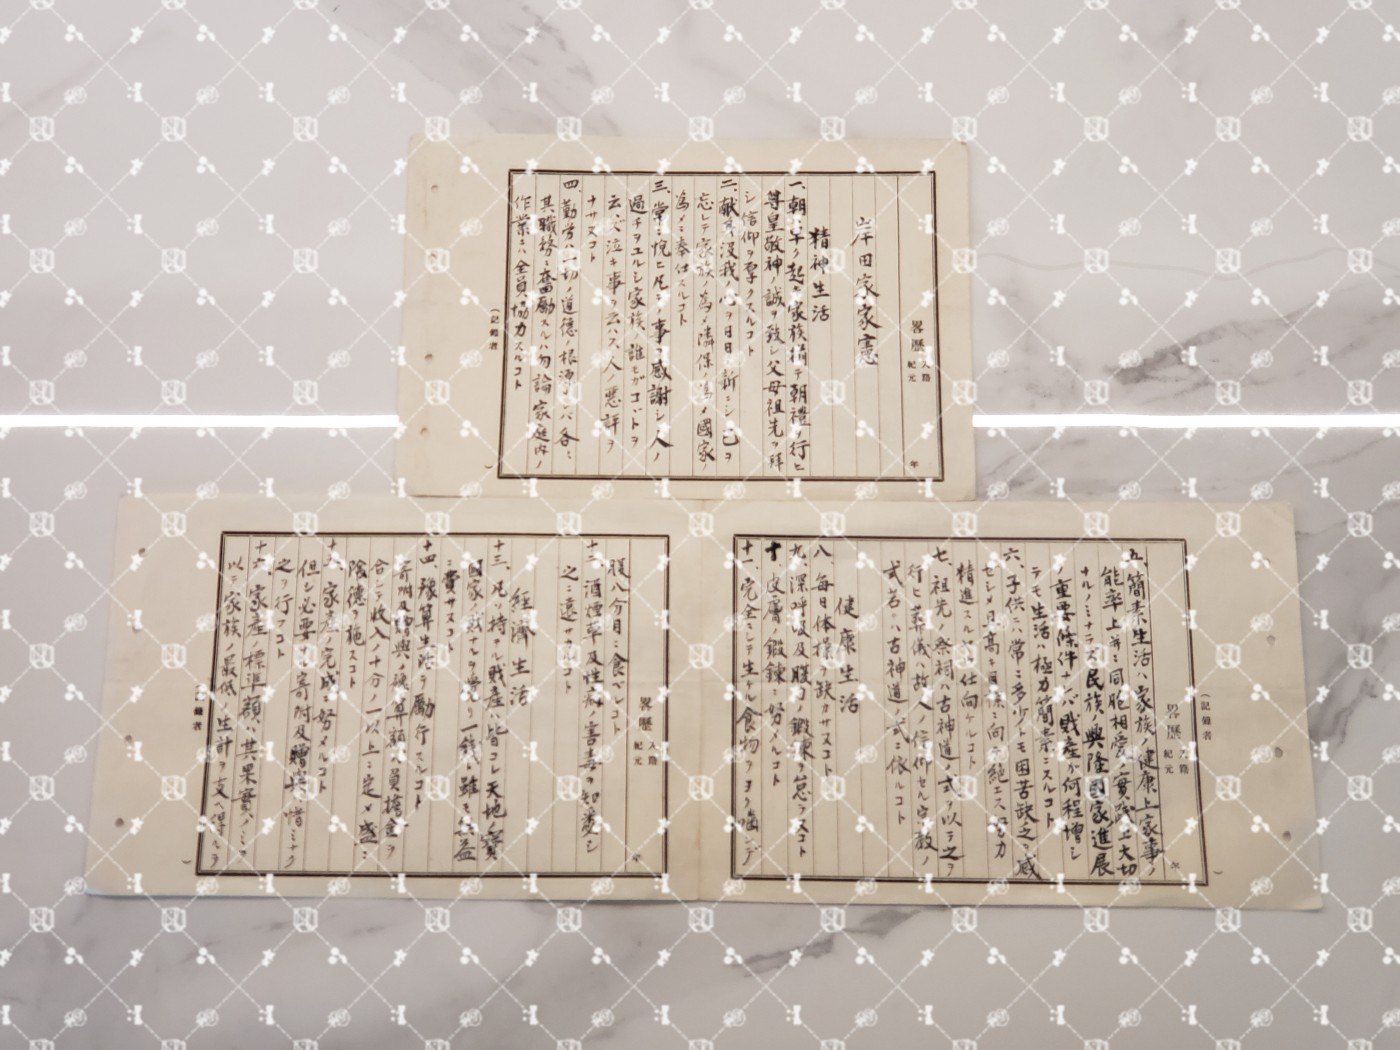 畧歴
入路
紀元
年
岸田家家憲
精神生活
一、朝早ク起キ家族揃テ朝禮ヲ行ヒ
尊皇敬神ノ誠ヲ致シ父母祖先ヲ拜
シ信仰ヲ厚クスルコト
二、献身没我ノ心ヲ日日新ニシ己ヲ
忘レテ家族ノ為メ隣保ノ為メ國家ノ
為メニ奉仕スルコト
三、常ニ悦ヒ凡ノ事ニ感謝シ人ノ
過チヲユルシ家族ノ誰モガコトヲ
云ハズ泣キ事ヲ云ハズ人ノ悪評ヲ
ナサヌコト
四、勤労ハ一切ノ道徳ノ根源ナレバ各ニ
其職務ニ奮励スルハ勿論家庭内ノ
作業ニハ全員協力スルコト
(記録者 )
(記録者 )
畧歴
入路
紀元
年
五、簡素生活ハ家族ノ健康上家事ノ
能率上并ニ同胞相愛ノ實践上大切
ナルノミナラズ民族ノ興隆國家進展
ノ重要條件ナレバ財産ガ何程増シ
テモ生活ハ極力簡素ニスルコト
六、子供ニハ常ニ多少トモ困苦缺乏ヲ感
セシメ且高キ目標ニ向テ絶エズ努力
精進スル様仕向ケルコト
七、祖先ノ祭祠ハ古神道ノ式ヲ以テ之ヲ
行ヒ葬儀ハ故人ノ信仰セル宗教ノ
式若クハ古神道ノ式ニ依ルコト
健康生活
八、毎日体操ヲ缺カサヌコト
九、深呼吸及腹力ノ鍛錬ヲ怠ラヌコト
十、皮膚ノ鍛錬ニ努メルコト
十一、完全ニシテ生ケル食物ヲヨク噛ンデ
畧歴
入路
紀元
年
腹八分目ニ食ベルコト
十二、酒煙草及性病ノ害毒ヲ知愛シ
之ニ遠ザカルコト
經濟生活
十三、凡ソ持テル財産ハ皆コレ天地ノ寳
國家ノ財ナルヲ覚リ一銭ト雖モ無益
ニ費サヌコト
十四、豫算生活ヲ勵行スルコト
寄附及贈與ノ豫算額ハ員擔金ヲ
合シテ收入ノ十分ノ一以上ニ定メ盛ニ
陰徳ヲ施スコト
十五、家産ノ完成ニ努メルコト
但シ必要ナル寄附及贈與ハ惜ミナク
之ヲ行フコト
十六、家産ノ標準額ハ其果實ノミヲ
以テ家族ノ最低ノ生計ヲ支ヘ得ルヲ
記録者 )